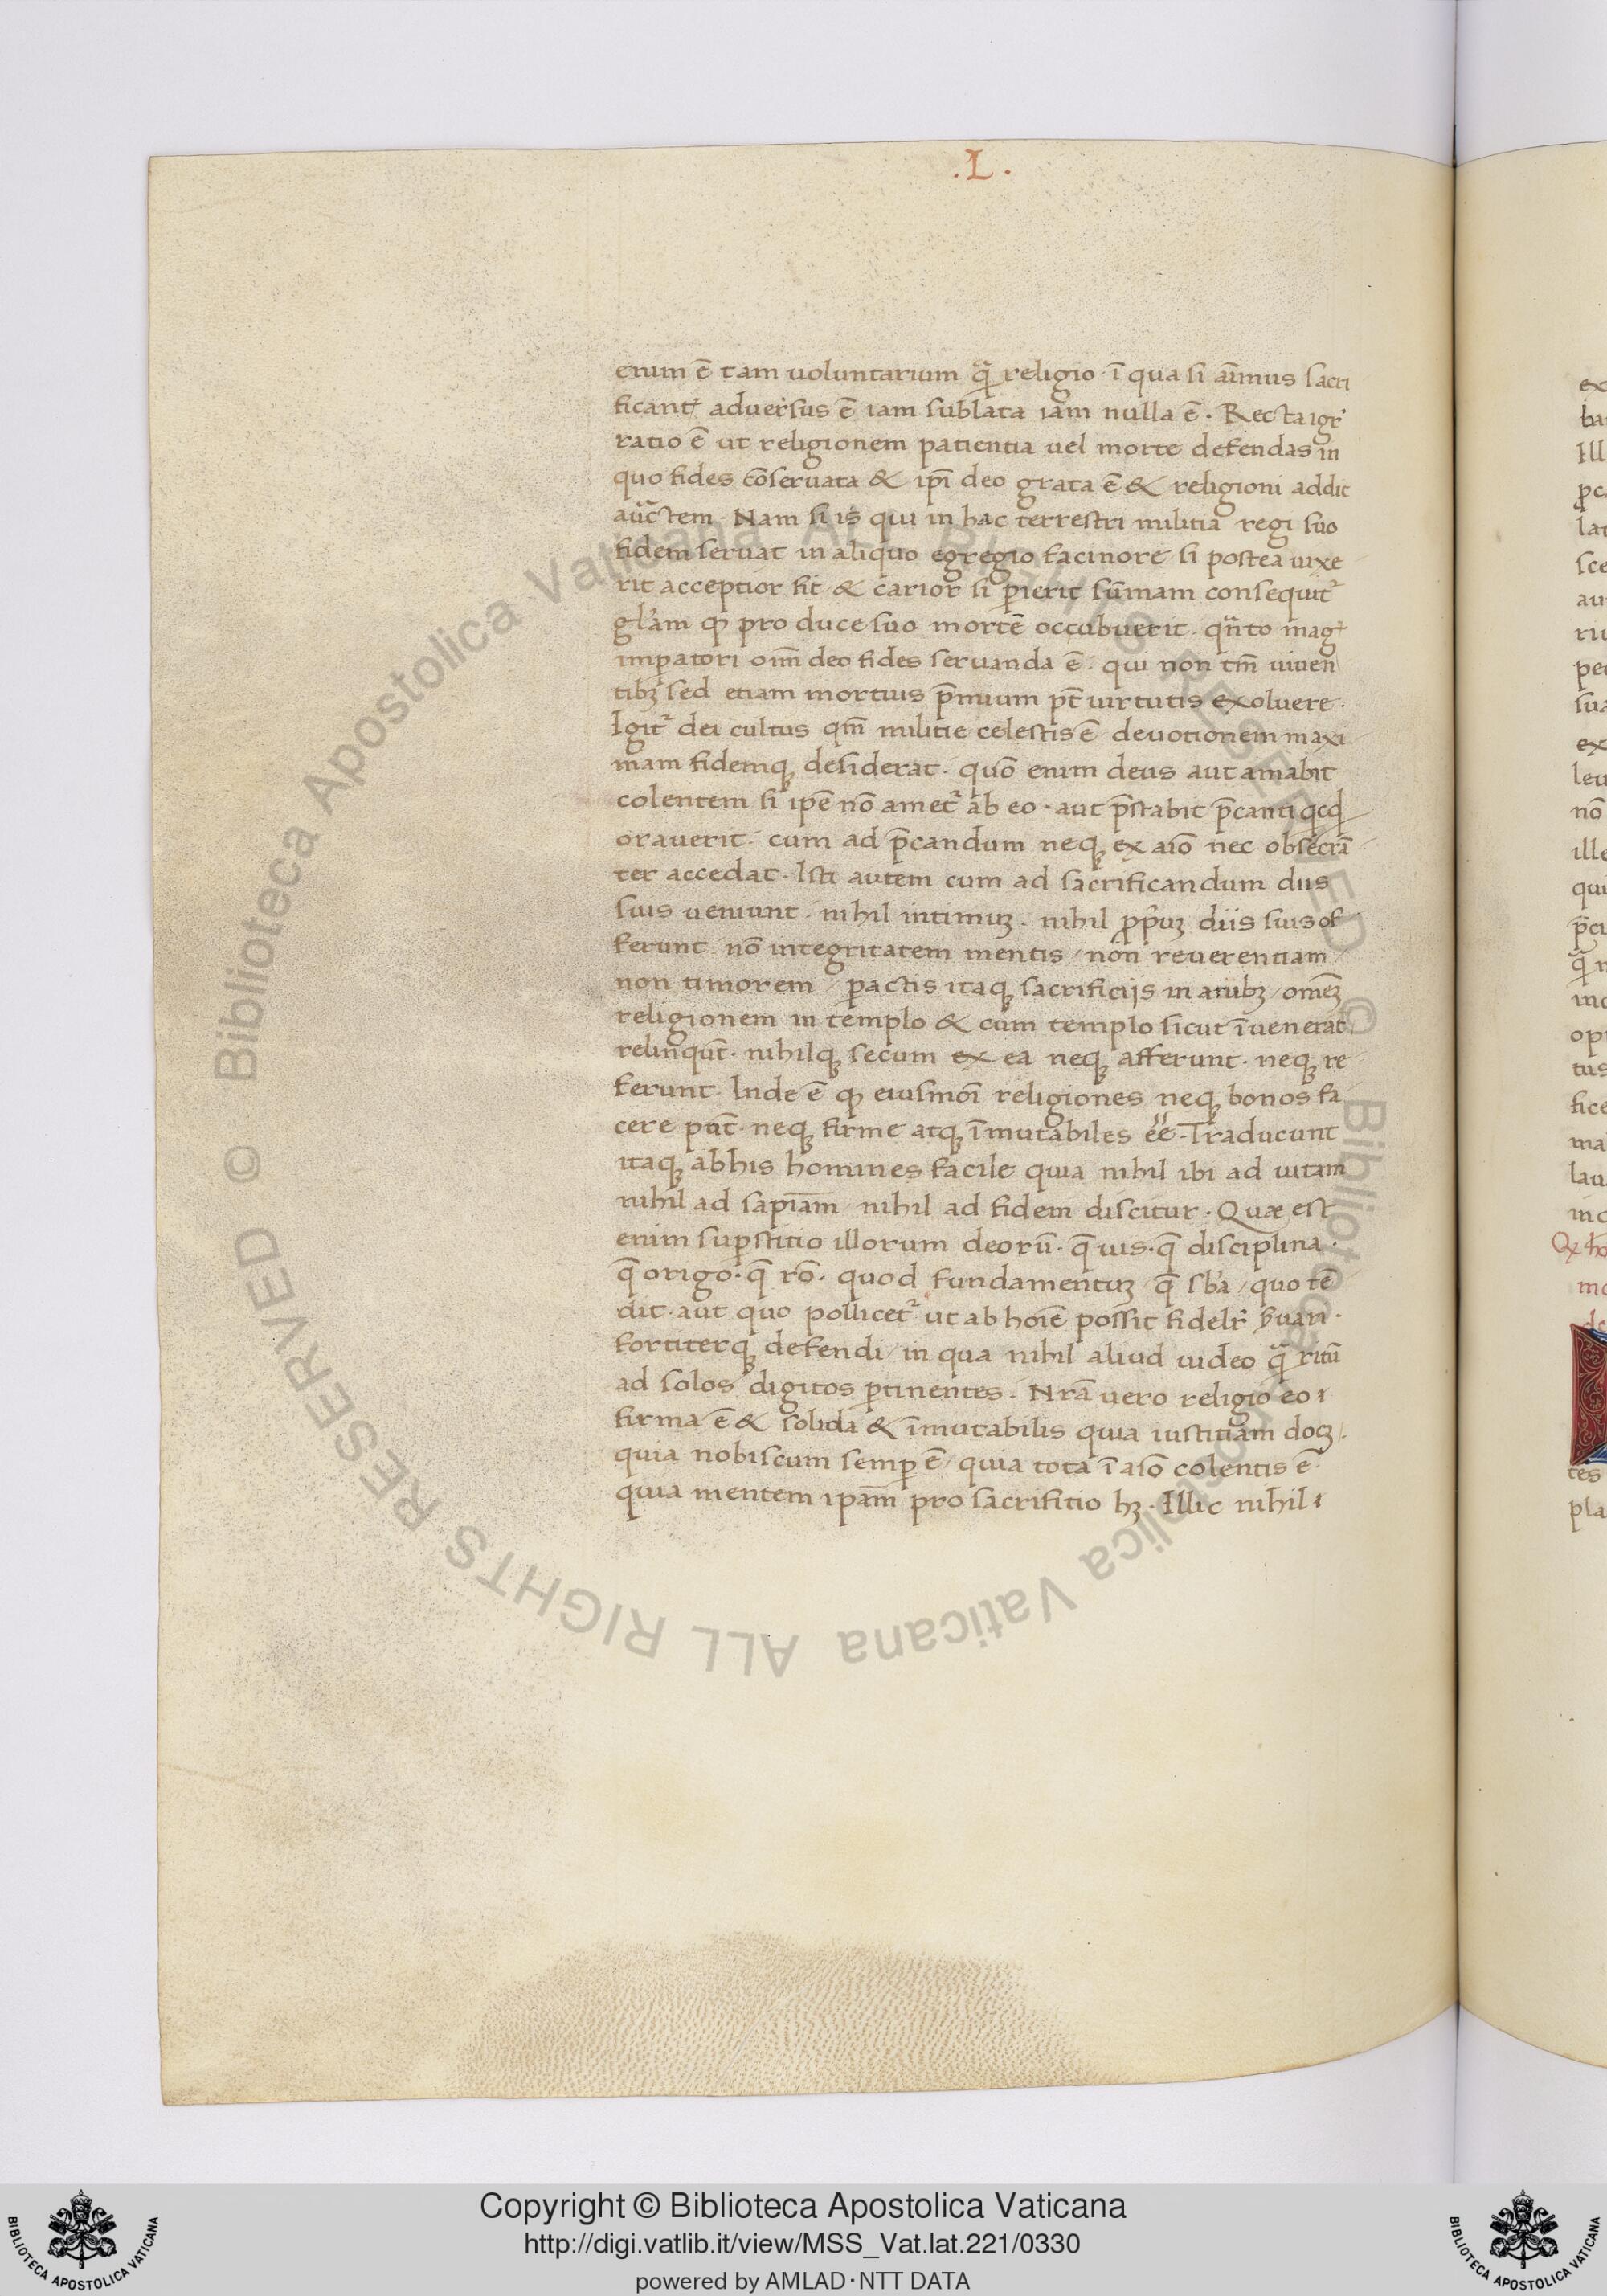 .L.
enim ē tam uoluntarium q̄ religio · ī qua si aīmus sacri
ficantr̄ aduersus ē iam sublata iam nulla ē . Recta igr̄
ratio ē ut religionem patientia uel morte defendas in
quo fides cōseruata & ipī deo grata ē & religioni addit
auctem . Nam si is qui in hac terrestri militia regi suo
fidem seruat in aliquo egregio facinore si postea uixe
rit acceptior fit & carior si ꝑierit sūmam consequitr̄
gl'am ꝙ pro duce suo mortē occubuerit . qn̄to mag
imꝑatori oīm deo fides seruanda ē . qui non tm̄ uiuen
tibꝫ sed etiam mortuis p̄mium pt̄ uirtutis exoluere .
Igitr̄ dei cultus qm̄ militie celestis ē deuotionem maxi
mam fidemqꝫ desiderat . quō enim deus aut amabit
colentem si ipē nō ametr̄ ab eo . aut p̄stabit p̄canti qcq̄d
orauerit . cum ad p̄candum neqꝫ ex aīo nec obseruā
ter accedat . Isti autem cum ad sacrificandum diis
suis ueniunt . nihil intimuꝫ . nihil ꝓpriuꝫ diis suis of
ferunt . nō integritatem mentis / non reuerentiam /
non timorem / ꝑactis itaqꝫ sacrificijs inanibꝫ / omēꝫ
religionem in templo & cum templo sicut īuenerāt
relinqūt . nihilqꝫ secum ex ea neqꝫ afferunt . neqꝫ re
ferunt . Inde ē ꝙ eiusmōi religiones neqꝫ bonos fa
cere pn̄t . neqꝫ firme atqꝫ īmutabiles ēē . Traducunt
itaqꝫ ab his homines facile quia nihil ibi ad uitam
nihil ad sapīam / nihil ad fidem discitur . Quæ est
enim suꝑstitio illorum deorū . q̄ uis . q̄ disciplina .
q̄ origo . q̄ rō . quod fundamentuꝫ / q̄ sb'a / quo tē
dit . aut quo pollicetr̄ ut ab hoīe possit fidelr̄ s̄uari .
fortiterqꝫ defendi / in qua nihil aliud uideo q̄ ritū
ad solos digitos ꝑtinentes . Nr̄a uero religio eo
firma ē & solida & īmutabilis quia iustitiam docꝫ .
quia nobiscum semꝑ ē / quia tota ī aīo colentis ē
quia mentem ipam̄ pro sacrifitio hꝫ . Illic nihil
Copyright © Biblioteca Apostolica Vaticana
http://digi.vatlib.it/view/MSS_Vat.lat.221/0330
powered by AMLAD·NTT DATA